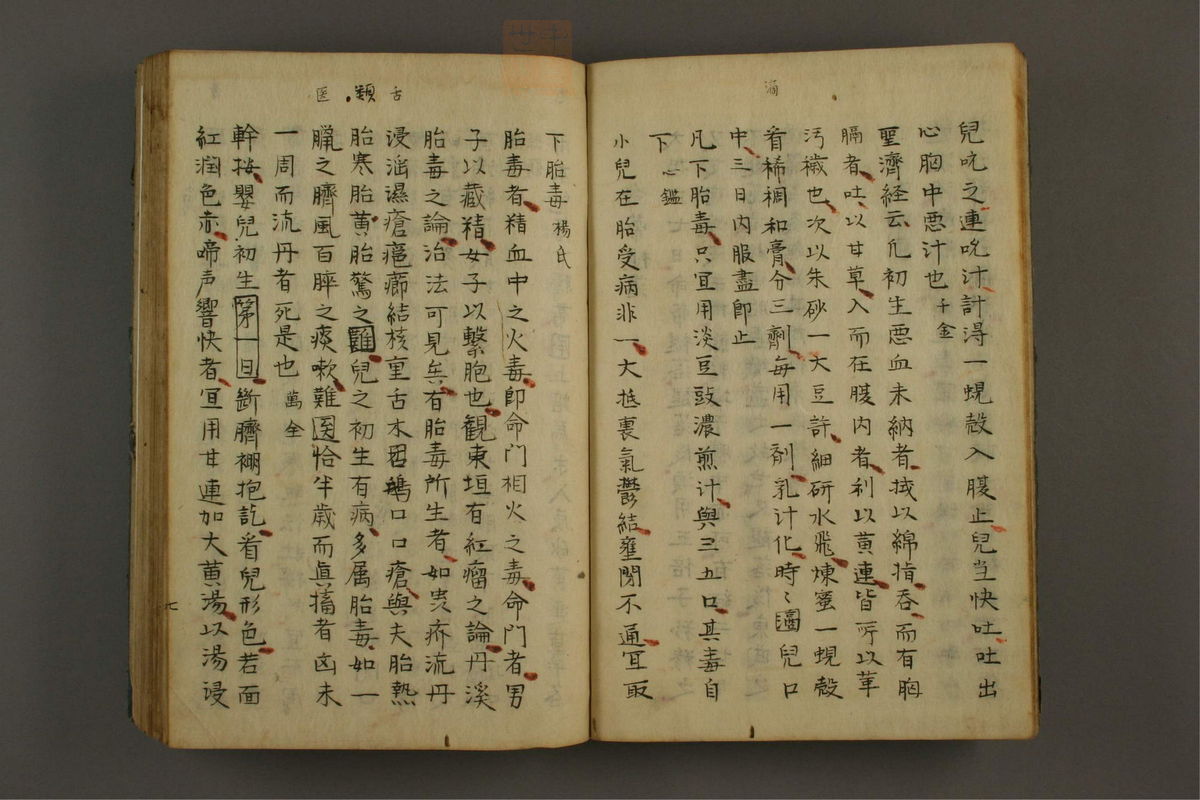 滴
兒吮之連吮汁計得一蜆殼入腹止兒当快吐吐出
心胸中悪汁也千金
聖濟経云凡初生悪血未納者拭以綿指吞而有胸
膈者吐以甘草入而在腹内者利以黄連皆所以革
汚穢也次以朱砂一大豆許細研水飛煉蜜一蜆殼
看稀稠和膏分三劑每用一剤乳汁化時〻圖兒口
中三日内服盡即止
凡下胎毒只宜用淡豆豉濃煎汁與三五口其毒自
下心鑑
小兒在胎受病非一大抵裏氣鬱結壅閉不通宜取
下胎毒楊氏
舌類医
胎毒者精血中之火毒即命門相火之毒命門者男
子以藏精女子以繫胞也観東垣有紅瘤之論丹溪
胎毒之論治法可見矣有胎毒所生者如虫疥流丹
浸淫濕瘡癰癤結核重舌木舌鵝口口瘡與夫胎熱
胎寒胎黄胎驚之類兒之初生有病多属胎毒如一
臘之臍風百晬之痰嗽難医恰半歳而真搐者凶未
一周而流丹者死是也萬全
幹按嬰兒初生第一日断臍裯抱訖看兒形色若面
紅潤色赤啼声響快者宜用甘連加大黄湯以湯浸
七